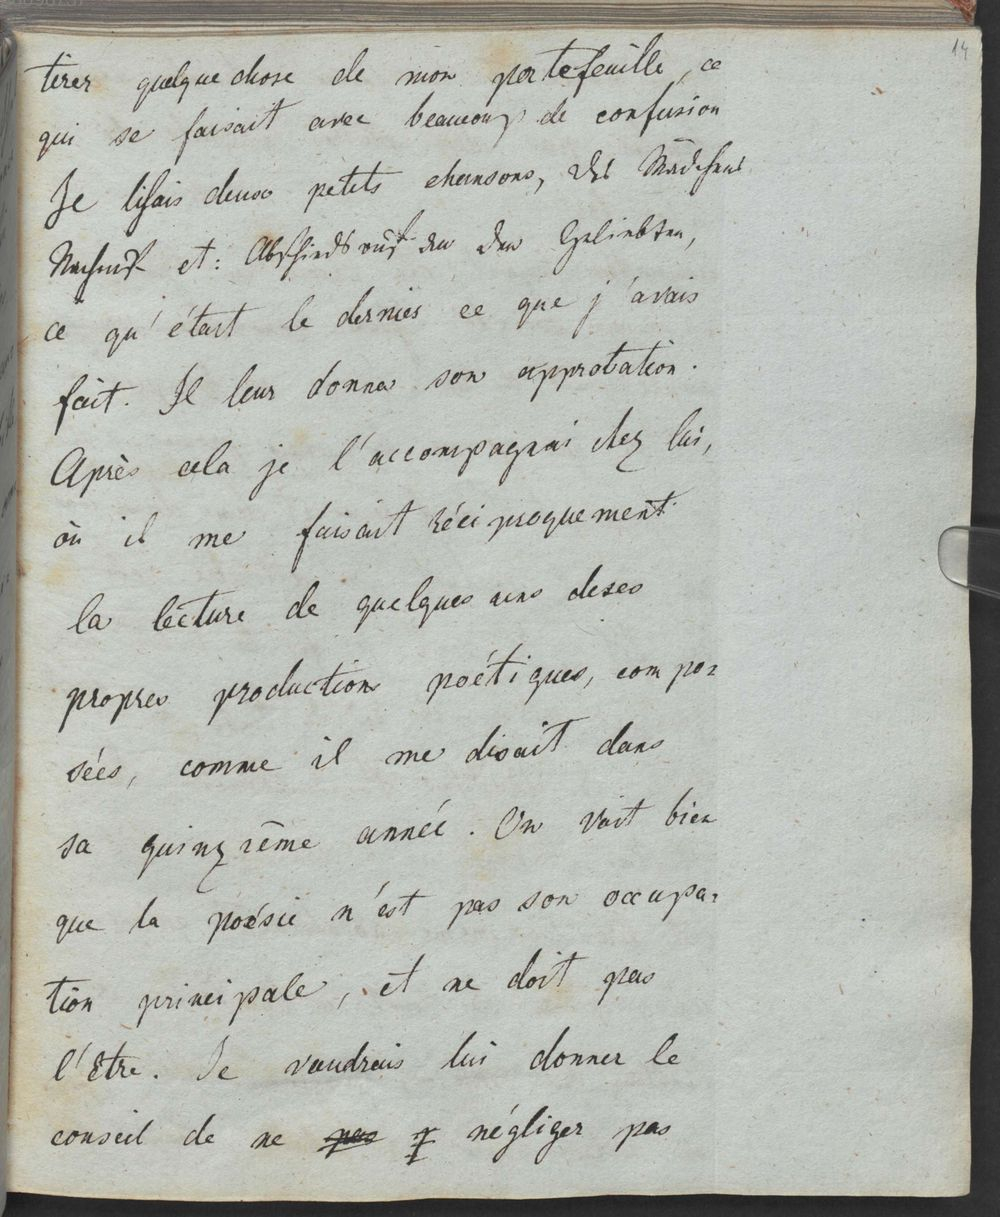 14
tirer quelque chose de mon portefeuille, ce
qui se faisait avec beaucoup de confusion
Je lisais deux petits chansons, des Mädchens
Nachruf et: Abschiedsruf an den Geliebten,
ce qu'était le dernier ce que j'avais
fait. Il leur donna son approbation.
Après cela je l'accompagnai chez lui,
où il me faisait réciproquement
la lecture de quelques uns de ses
propres productions poétiques, compo=
sées, comme il me disait dans
sa quinzième année. On voit bien
que la poésie n'est pas son occupa=
tion principale, et ne doit pas
l'être. Je voudrais lui donner le
conseil de ne pas négliger pas